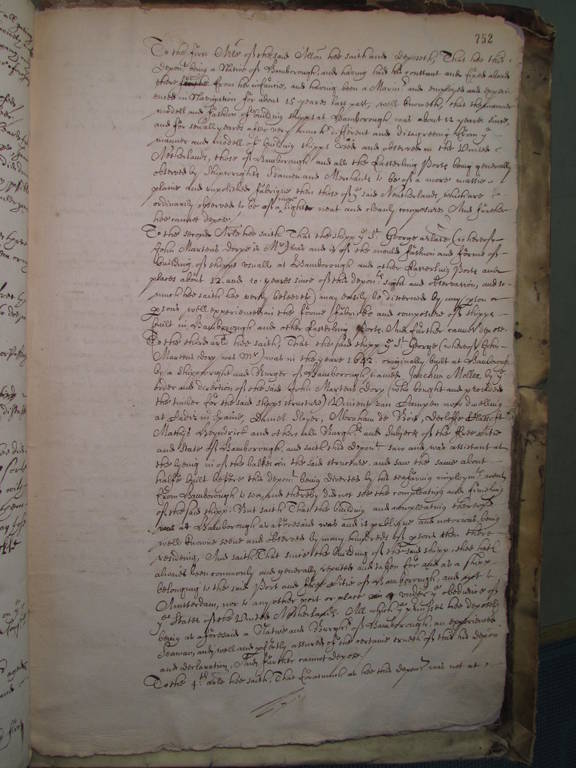 752
To the first Arle of the said Allon hee saith and deposeth, That hee this
deponent being a Native of Hamborough, and having had his constant and fixed aboad
there from his infancie, and having been a Marin and employed and experi=
enced in Navigation for about 15 yeares last past, well knoweth, that the manner
modell and fashion of building shipps at Hamborough was about 12 yeares since,
and for severall yeares after very much different and disagreeing from ye
manner and modell of building shipps used and observed in the United
Netherlands, those of Hamborough and all the Easterling Ports being generally
observed by Shipwrights Seamen and Merchants to be of a more massie
plaine and unpolished fabrique then those of ye said Netherlands, which are
ordinarily observed to be of a slighter neat and cleanly composure And further
hee cannot depose.
To the second Arle hee saith That the shipp ye St George arlate (whereof
John Martens Dorpe is Mr) was and is of the mould fashion and forme of
building of shipps usuall at Hamborough and other Easterling Ports and
places about 12 and 10 yeares since of this deponts sight and observation, and so
much hee saith (as hee verily beleeveth) may easily be discerned by any pson or
psons well experienced in the forme fabrique and composure of shipps
built in Hamborough and other Easterling Ports. And further cannot depose.
To the third arle hee saith, That the said shipp ye St George (whereof John
Martens Dorp was Mr) was in the yeare 1642 originally built at Hamborough
by a Shipwright and Burger of Hamborough named Jochim Moller, by ye
order and direction of the said John Martens Dorp (who bought and provided
the timber for the said shipps structure) Vincent van Campen now dwelling
at Cadiz in Spaine, Daniel Slojer, Abraham de Voss,
Mathys Heyndrick and others all Burghrs and Subjects of the free Citie
and State of Hamborough, and saith this depont saw and was assistant at
the Laying in of the ballast in the said structure, and saw the same about
halfe built before this depont being diverted by his seafaring imploymt went
from Hamborough to sea, and thereby did not see the compleating and finishing
of the said shipp. But saith That the building and compleating thereof
at Hamborough as aforesaid was and is publique and notorious being
well knowne seene and observed by many hundreds of psons then there
residing, And saith That since the building of the said shipp shee hath
alwaies been commonly and generally reputed and taken for and as a shipp
belonging to the said Port and free Citie of Hamborough, and not to
Amsterdam, nor to any other port or place under ye obedience of
ye States of the United Netherlands. All which ye premisses hee deposeth
being as aforesaid a Native and Burghr of Hamborough, an experienced
Seaman, and well and pfectly assured of the certaine trueth of this his deposition
and declaration, And further cannot depose.
To the 4th Arle hee saith, That forasmuch as hee this depont was not at